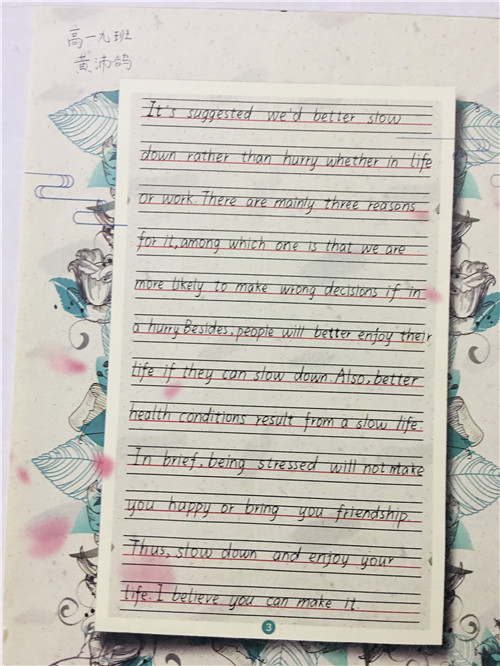 高一九班
黄沛鸽
It's suggested we'd better slow
down rather than hurry whether in life
or work. There are mainly three reasons
for it, among which one is that we are
more likely to make wrong decisions if in
a hurry. Besides, people will better enjoy their
life if they can slow down. Also, better
health conditions result from a slow life.
In brief, being stressed will not make
you happy or bring you friendship.
Thus, slow down and enjoy your
life. I believe you can make it.
3